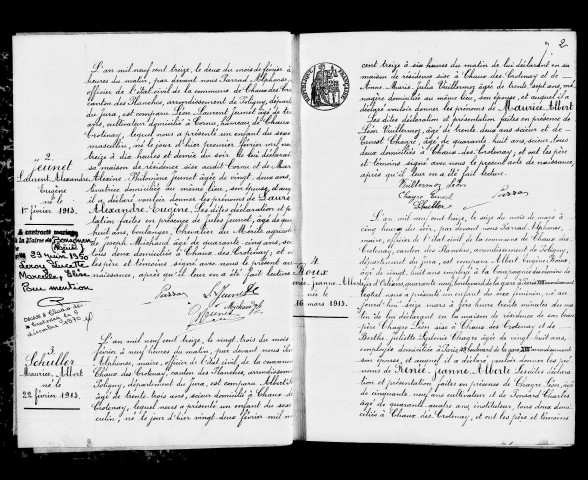 2
L'an mil neuf cent treize, le deux du mois de février à
heures du matin, par devant nous Parrad Alphonse,
officier de l'état civil de la commune de Chaux des Crotenay
canton des Planches, arrondissement de Poligny, départ
du Jura, est comparu Léon Laurent Jeunet âgé de tr
ans, cultivateur, domicilié à
Crotenay, lequel nous a présenté un enfant du sexe
masculin, né le jour d'hier premier février mil ne
treize à dix heures et demie du soir de lui déclarant
sa maison de résidence sise audit Cornu et de Mar
Philomène Jeunet âgée de vingt deux ans,
domiciliée du même lieu, son épouse, et auqu
il a déclaré vouloir donner les prénoms de Laure
Alexandre Eugène. Les dites déclaration et p
tation faites en présence de Jules Jeunet, âgé de qua
huit ans, boulanger, Chevalier du Mérite agricole
de Joseph Michaud âgé de quarante cinq ans,
tous deux domiciliés à Chaux des Crotenay, et
père et témoins signé avec nous le présent acte
naissance, après qu'il leur en a été fait lecture
2
Jeunet
Laurent Alexandre
Eugène
né le
1er février 1913.
A contracté mariage
à la Mairie de
le 29 juin 1950
avec
Marcelle
Pour mention
Décédé à
Crotenay le 6
décembre 1970
Parrad L. Jeunet
L'an mil neuf cent treize, le vingt trois du mois
février à neuf heures du matin, par devant nous Pa
Alphonse, maire, officier de l'état civil de la commune
Chaux des Crotenay, canton des Planches, arrondissement
Poligny, département du Jura, est comparu Albert
âgé de trente trois ans, scieur domicilié à Chaux
Crotenay, lequel nous a présenté un enfant du sexe
culin, né le jour d'hier vingt deux février mil n
3
Maurice Albert
né le
22 février 1913.
cent treize à six heures du matin de lui déclarant en sa
maison de résidence sise à Chaux des Crotenay et de
Anne Marie Julia Vuillermoz âgée de trente sept ans, mé
nagère domiciliée au même lieu, son épouse, et auquel il a
déclaré vouloir donner les prénoms de Maurice Albert
Les dites déclaration et présentation faites en présence de
Léon Vuillermoz, âgé de trente deux ans scieur et de
Ernest Chagre, âgé de quarante huit ans, scieur, tous
deux domiciliés à Chaux des Crotenay, et ont le père
et témoins signé avec nous le présent acte de naissance,
après qu'il leur en a été fait lecture.
Vuillermoz Léon
Chagre Ernest
Parrad
L'an mil neuf cent treize, le seize du mois de mars à
cinq heures du soir, par devant nous Parrad Alphonse,
maire, officier de l'état civil de la commune de Chaux des
Crotenay, canton des Planches, arrondissement de Poligny
département du Jura, est comparu Albert Eugène Roux
âgé de vingt huit ans employé à la Compagnie du chemin de
fer d'Orléans, quarante neuf, boulevard de la gare à Paris XIII
lequel nous a présenté un enfant du sexe féminin, né au
jourd'hui seize mars à une heure trente minutes du ma
tin de lui déclarant en la maison de résidence de son beau
père Chagre Léon sise à Chaux des Crotenay et de
Berthe Juliette Ludonie Chagre âgée de vingt huit ans,
employée domiciliée à Paris 49 boulevard de la gare XIII
son épouse, et auquel il a déclaré vouloir donner les pré
noms de Renée Jeanne Alberte. Les dites déclara
tion et présentation faites en présence de Chagre Léon, âgé
de cinquante neuf ans cultivateur et de Ponsard Charles
âgé de quarante quatre ans, instituteur, tous deux domi
ciliés à Chaux des Crotenay, et ont les père et témoins
4
Roux
Renée Jeanne Alberte
née le
16 mars 1913.